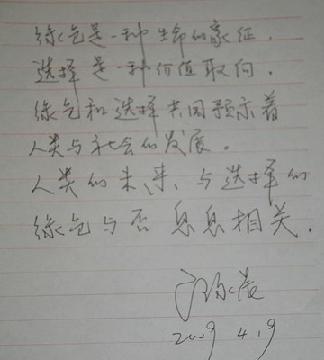 绿色是一种生命的象征.
选择是一种价值取向.
绿色和选择共同预示着
人类与社会的发展.
人类的未来,与选择的
绿色与否息息相关.
2009 4.9